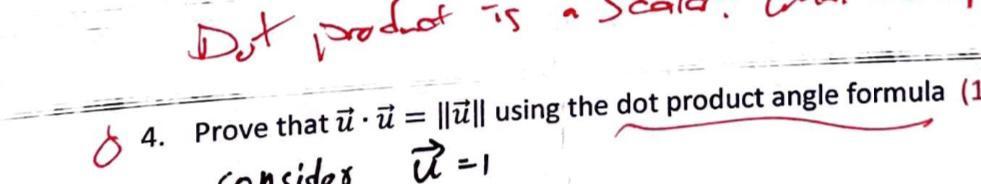 Dot product is a scalar.
0 4. Prove that u⃗ · u⃗ = ||u⃗|| using the dot product angle formula (1
consider u⃗ = 1